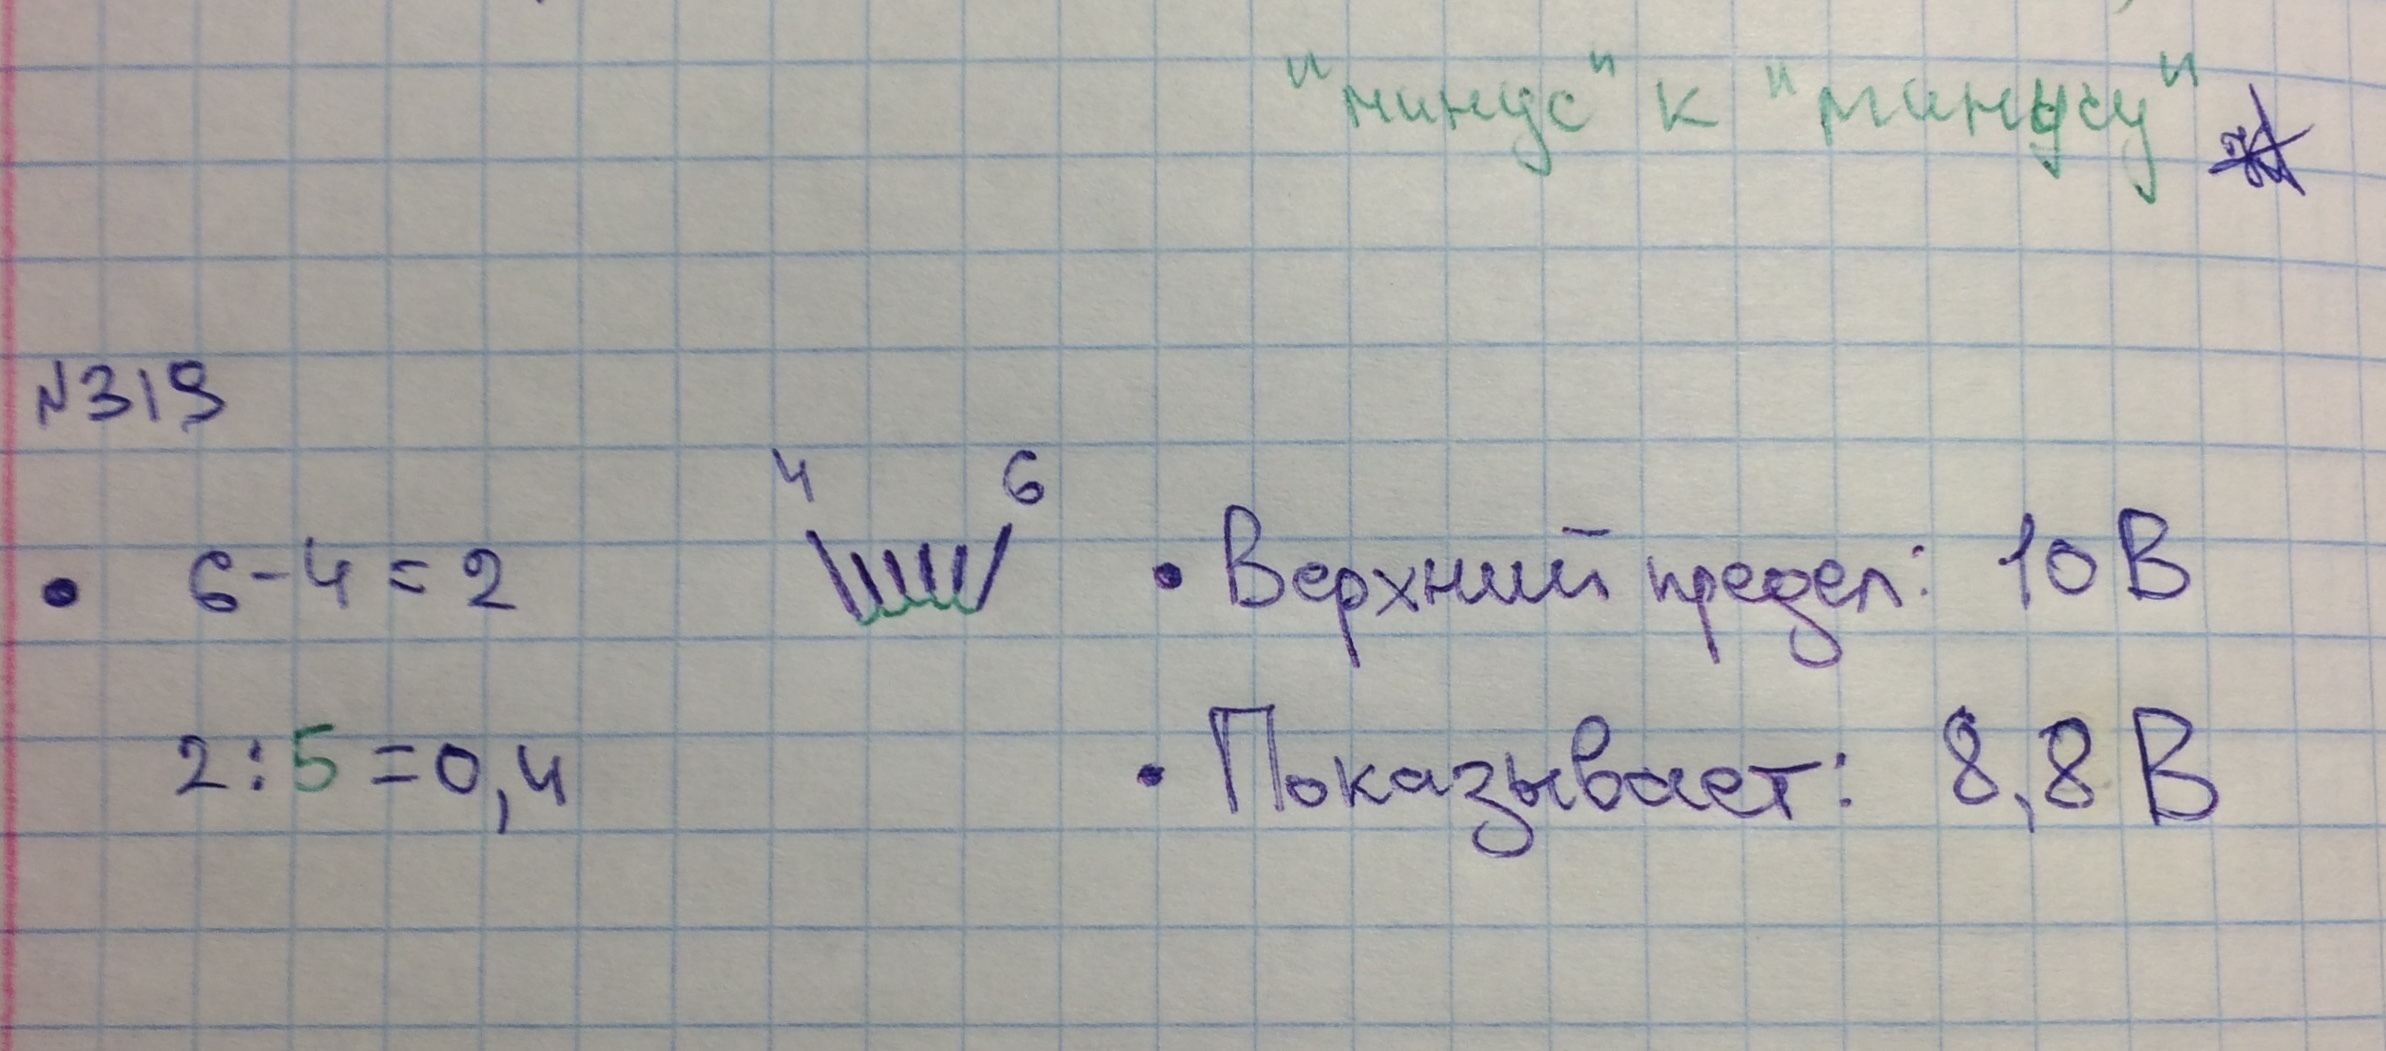 "минус" к "минусу"
№319
4 6
6-4=2
• Верхний предел: 10 В
2:5=0,4
• Показывает: 8,8 В